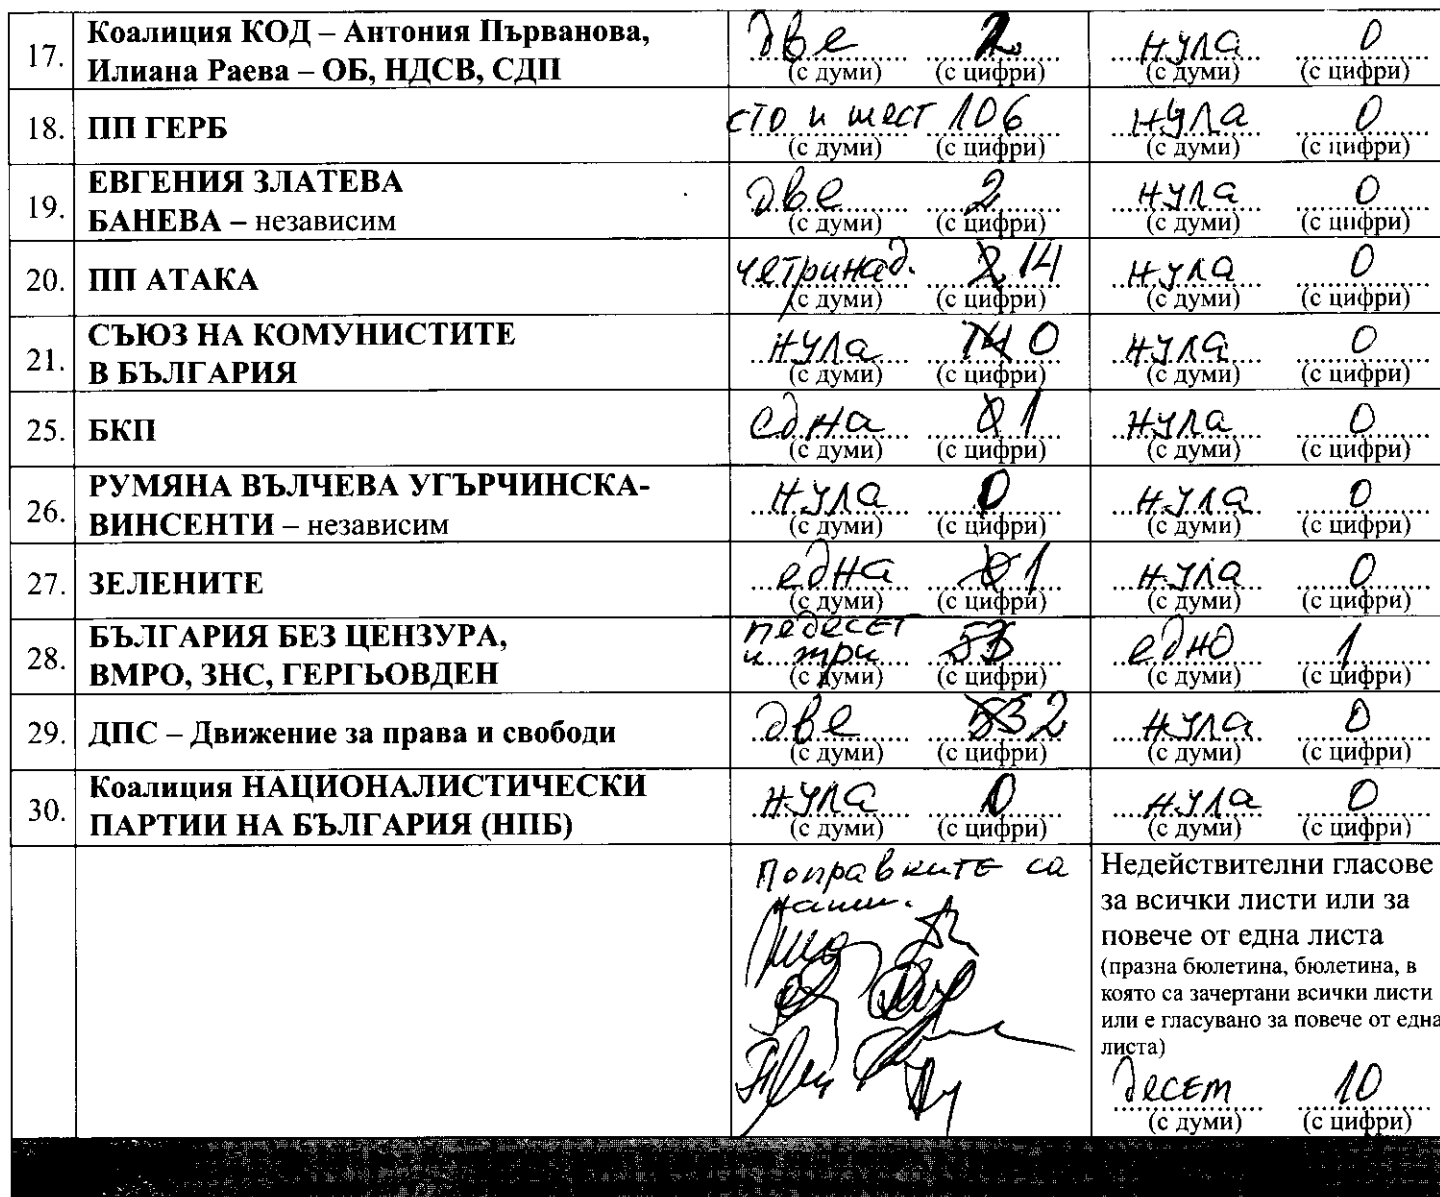 17. Коалиция КОД – Антония Първанова, Илиана Раева – ОБ, НДСВ, СДП две 2 нула 0
(с думи) (с цифри) (с думи) (с цифри)
18. ПП ГЕРБ сто и шест 106 нула 0
(с думи) (с цифри) (с думи) (с цифри)
19. ЕВГЕНИЯ ЗЛАТЕВА БАНЕВА – независим две 2 нула 0
(с думи) (с цифри) (с думи) (с цифри)
20. ПП АТАКА четринад. 2 14 нула 0
(с думи) (с цифри) (с думи) (с цифри)
21. СЪЮЗ НА КОМУНИСТИТЕ В БЪЛГАРИЯ нула 14 0 нула 0
(с думи) (с цифри) (с думи) (с цифри)
25. БКП една 0 1 нула 0
(с думи) (с цифри) (с думи) (с цифри)
26. РУМЯНА ВЪЛЧЕВА УГЪРЧИНСКА-ВИНСЕНТИ – независим нула 0 нула 0
(с думи) (с цифри) (с думи) (с цифри)
27. ЗЕЛЕНИТЕ една 0 1 нула 0
(с думи) (с цифри) (с думи) (с цифри)
28. БЪЛГАРИЯ БЕЗ ЦЕНЗУРА, ВМРО, ЗНС, ГЕРГЬОВДЕН педесет и три 53 едно 1
(с думи) (с цифри) (с думи) (с цифри)
29. ДПС – Движение за права и свободи две 53 2 нула 0
(с думи) (с цифри) (с думи) (с цифри)
30. Коалиция НАЦИОНАЛИСТИЧЕСКИ ПАРТИИ НА БЪЛГАРИЯ (НПБ) нула 0 нула 0
(с думи) (с цифри) (с думи) (с цифри)
Поправките са
наши.
Недействителни гласове
за всички листи или за
повече от една листа
(празна бюлетина, бюлетина, в
която са зачертани всички листи
или е гласувано за повече от една
листа)
десет 10
(с думи) (с цифри)